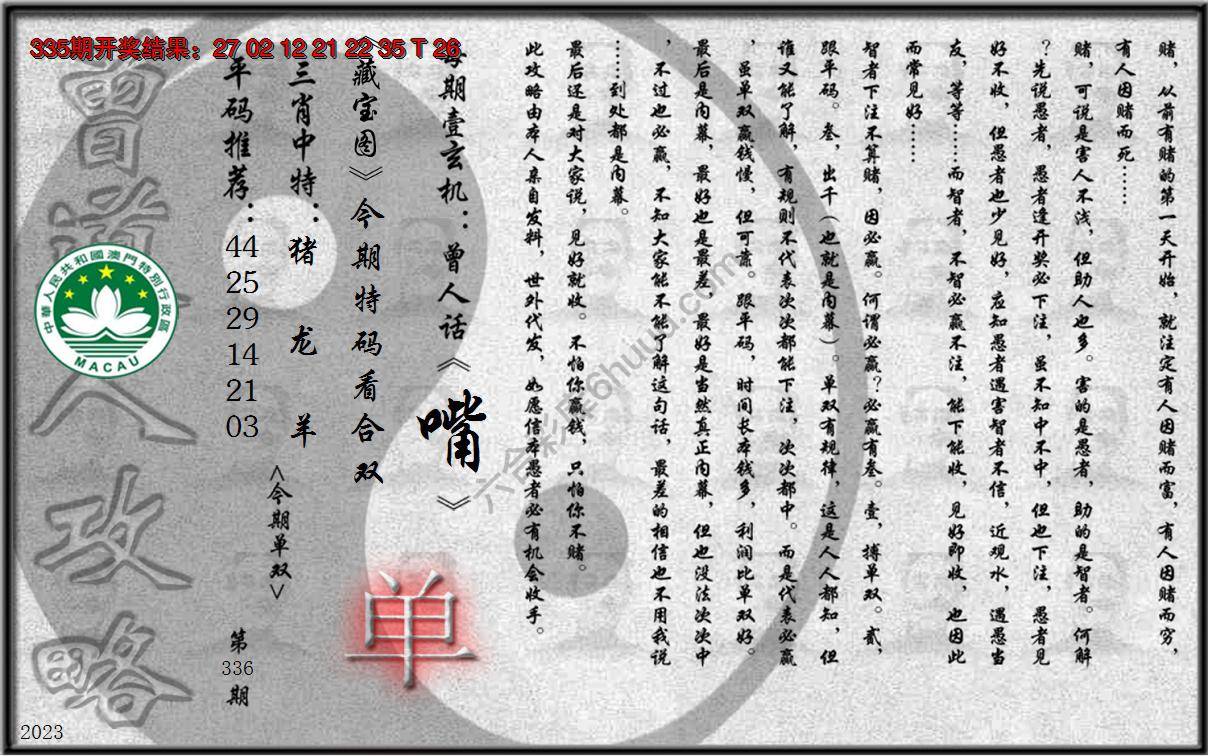 335期开奖结果：27 02 12 21 22 35 T 26
赌，从前有赌的第一天开始，就注定有人因赌而富，有人因赌而穷，
有人因赌而死……
赌，可说是害人不浅，但助人也多。害的是愚者，助的是智者。何解
？先说愚者，愚者逢开奖必下注，虽不知中不中，但也下注，愚者见
好不收，但愚者也少见好，应知愚者遇害智者不信，近观水，遇愚当
友，等等……而智者，不智必赢不注，能下能收，见好即收，也因此
而常见好……
智者下注不算赌，因必赢。何谓必赢？必赢有叁。壹，搏单双。贰，
跟平码。叁，出千（也就是内幕）。单双有规律，这是人人都知，但
谁又能了解，有规则不代表次次都能下注，次次都中。而是代表必赢
，虽单双赢钱慢，但可靠。跟平码，时间长本钱多，利润比单双好。
最后是内幕，最好也是最差，最好是当然真正内幕，但也没法次次中
，不过也必赢，不知大家能不能了解这句话，最差的相信也不用我说
……到处都是内幕。
最后还是对大家说，见好就收。不怕你赢钱，只怕你不赌。
此攻略由本人亲自发料，世外代发，如愿信本愚者必有机会收手。
每期壹玄机：曾人话《嘴》
《藏宝图》今期特码看合双
三肖中特：猪 龙 羊
平码推荐：44 25 29 14 21 03
<今期单双>
单
第336期
曾道人攻略
中華人民共和國澳門特別行政區
MACAU
六合彩库6huuu.com
2023